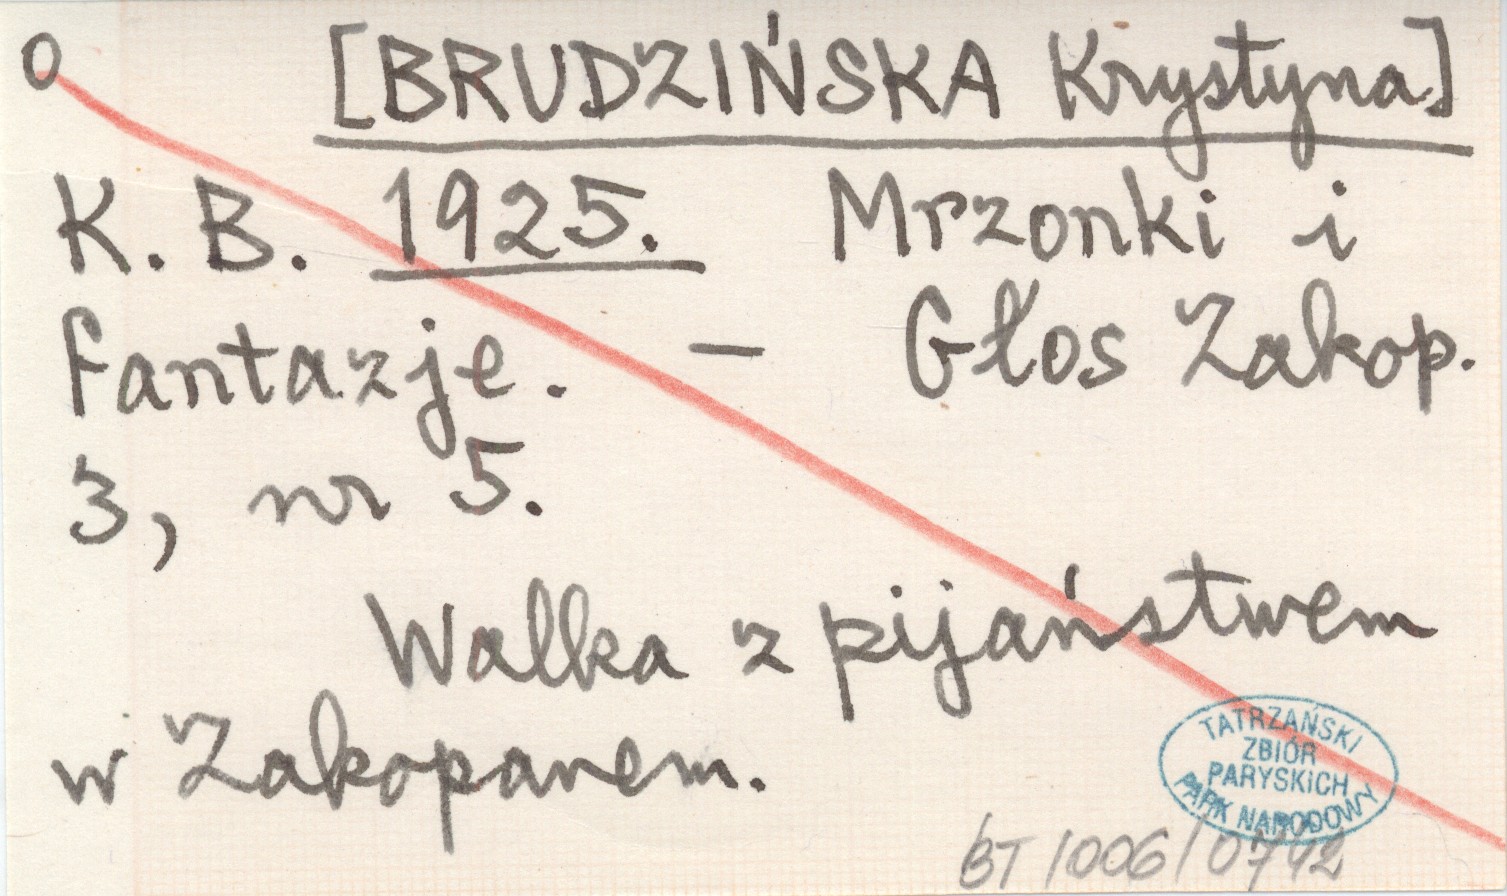 O [BRUDZIŃSKA Krystyna]
K. B. 1925. Mrzonki i
fantazje. – Głos Zakop.
3, nr 5.
Walka z pijaństwem
w Zakopanem.
TATRZAŃSKI
ZBIÓR
PARYSKiCH
PARK NARODOWY
BT/006/0742